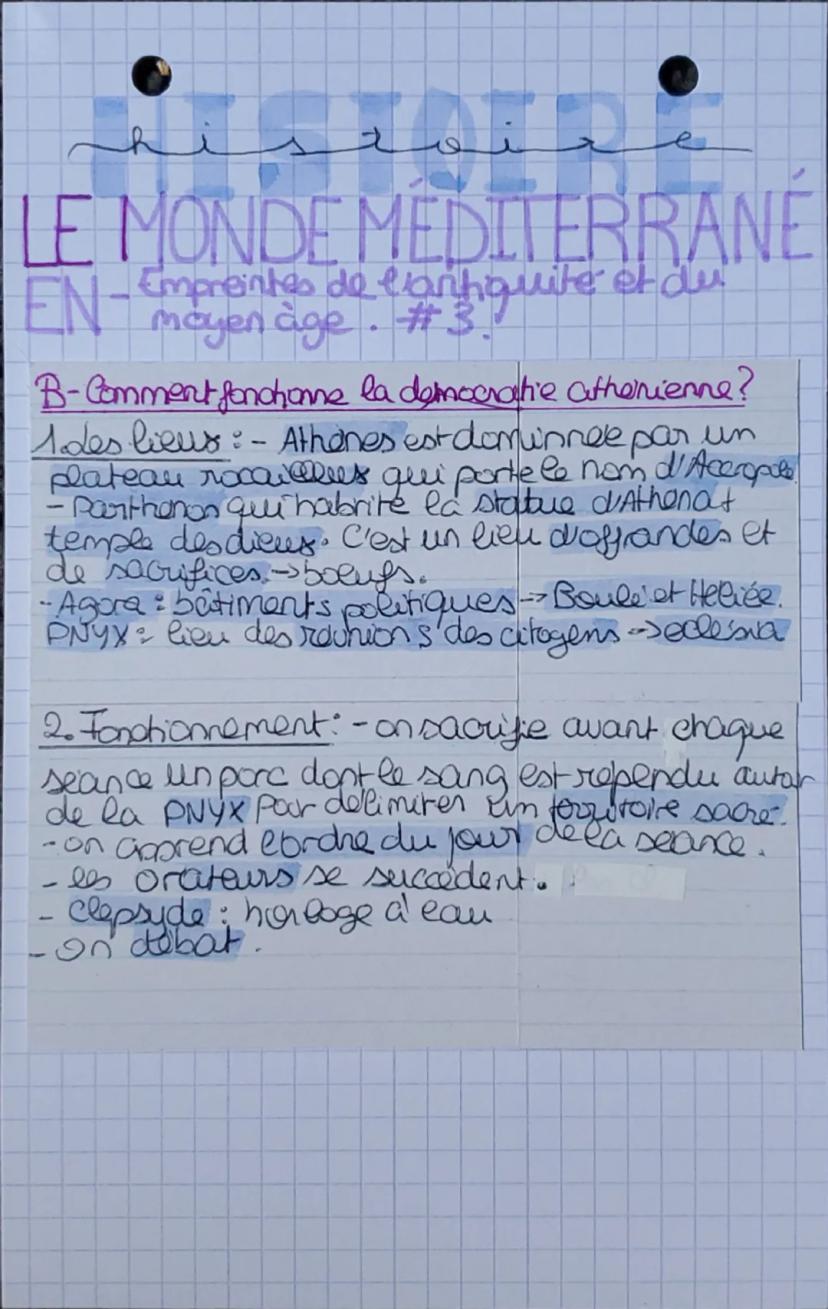 HISTOIRE
histoire
LE MONDE MÉDITERRANÉ
EN - Empreintes de l'antiquité et du
moyen âge. #3.
B- Comment fonctionne la democratie athenienne?
1. des lieux : - Athènes est dominnée par un
plateau rocailleux qui porte le nom d'Acropole
- Parthenon qui habrite la statue d'Athena +
temple des dieux. C'est un lieu d'offrandes et
de sacrifices. → boeufs.
- Agora : bâtiments politiques → Boulé et Heliée.
PNYX = lieu des réunions des citoyens → eclésia
2. Fonctionnement : - on sacrifie avant chaque
séance un porc dont le sang est rependu autour
de la PNYX pour délimiter un territoire sacré.
- on apprend l'ordre du jour de la séance.
- les orateurs se succèdent.
- clepsyde : horloge à eau
- on débat.